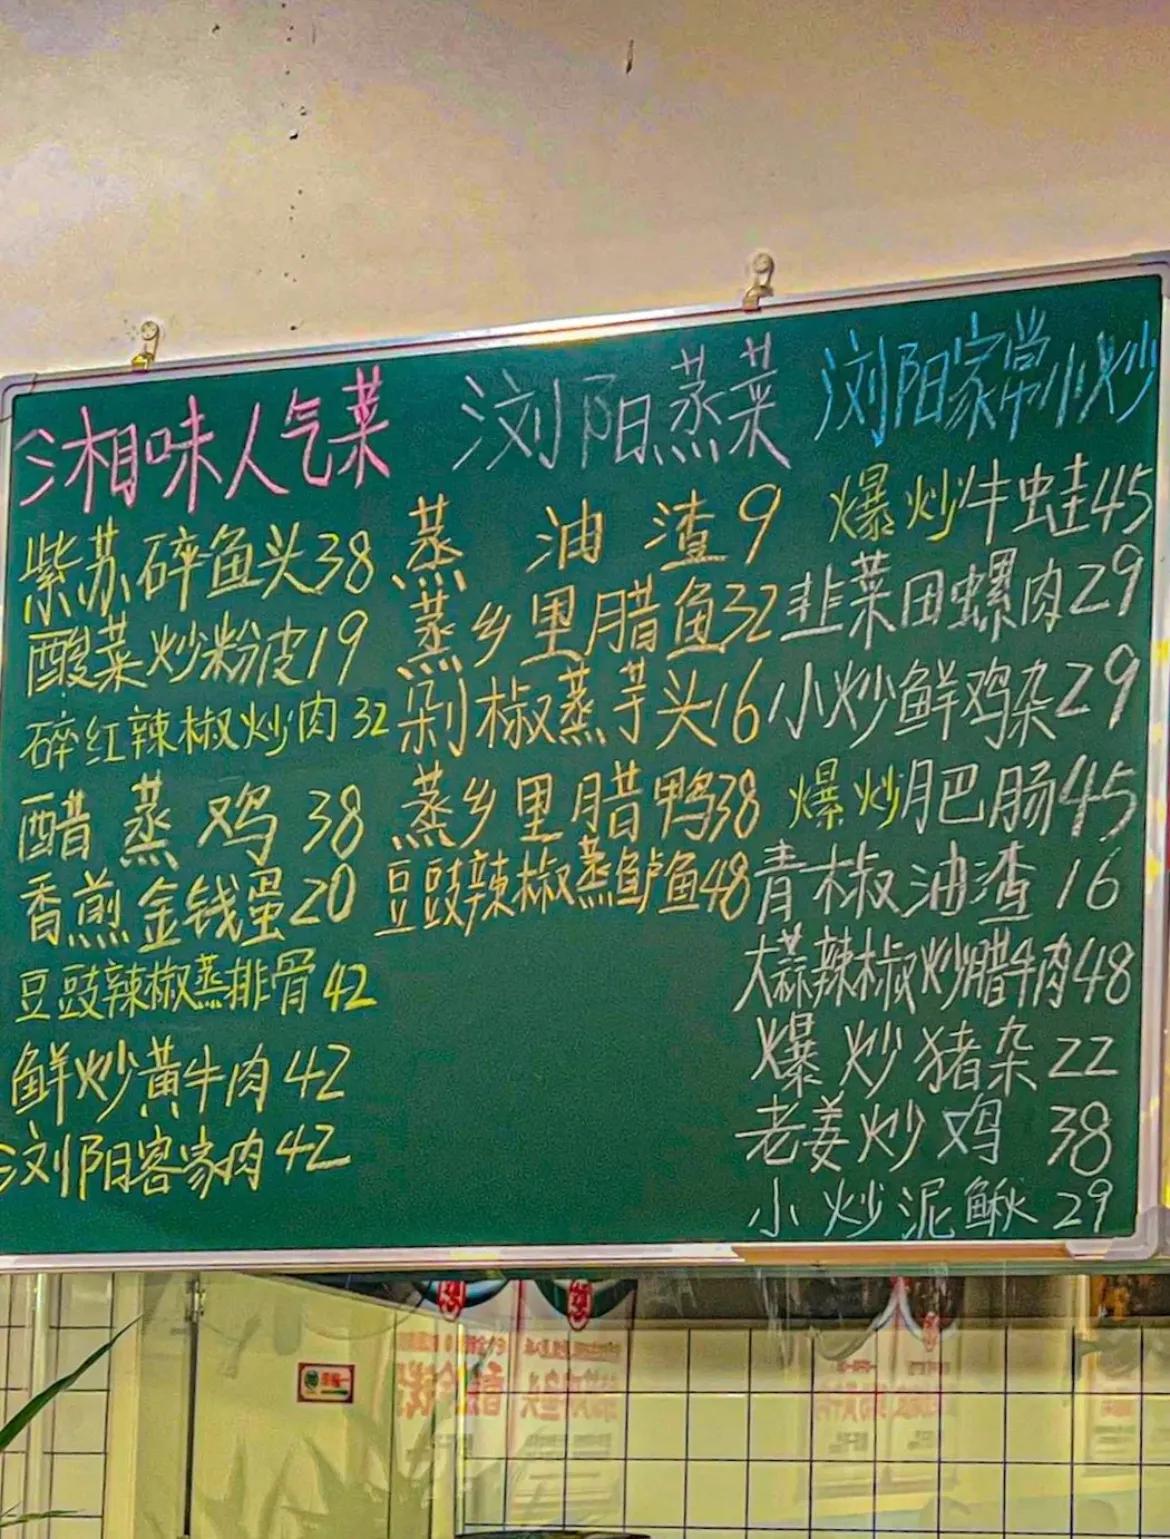 湘味人气菜
紫苏碎鱼头38
酸菜炒粉皮19
碎红辣椒炒肉32
醋蒸鸡38
香煎金钱蛋20
豆豉辣椒蒸排骨42
鲜炒黄牛肉42
浏阳客家肉42
浏阳蒸菜
蒸油渣9
蒸乡里腊鱼32
剁椒蒸芋头16
蒸乡里腊鸭38
豆豉辣椒蒸鲈鱼48
浏阳家常小炒
爆炒牛蛙45
韭菜田螺肉29
小炒鲜鸡杂29
爆炒肥肠45
青椒油渣16
大蒜辣椒炒腊牛肉48
爆炒猪杂22
老姜炒鸡38
小炒泥鳅29